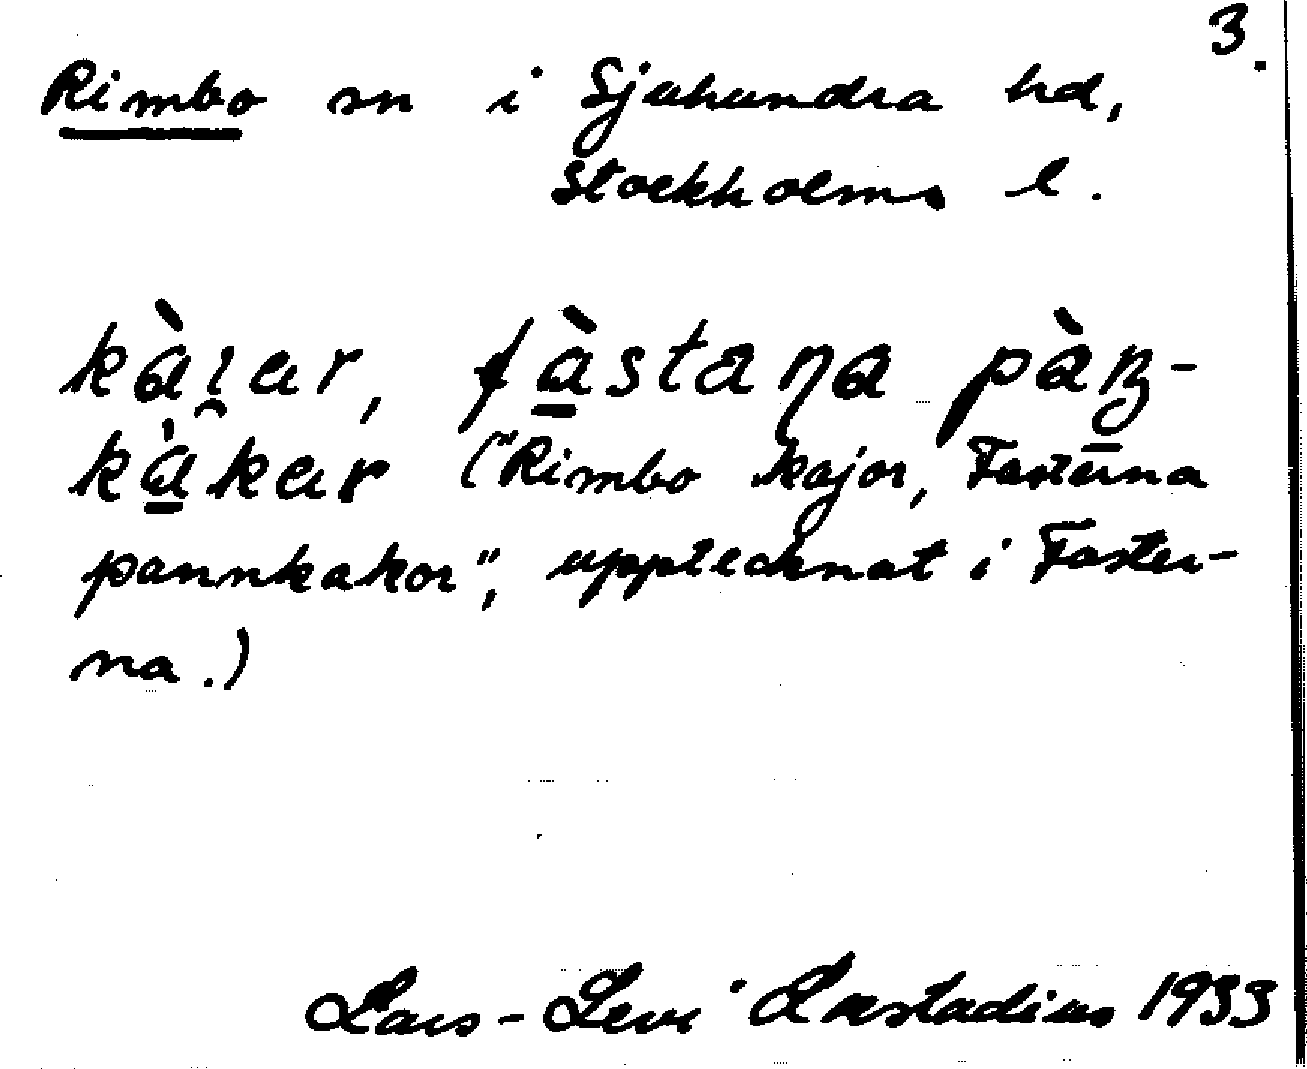 3.
Rimbo sn i Sjuhundra hd,
Stockholms l.
kàɪ̯ar, fàstaɳa pàŋ-
kàkar ("Rimbo kajor, Fasterna
pannkakor", upptecknat i Faster-
na.)
Lars-Levi Læstadius 1933